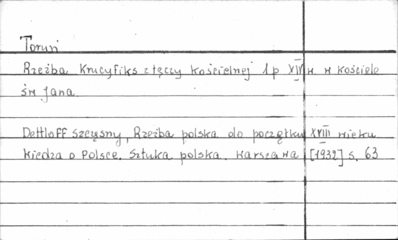 Toruń
Rzeźba Krucyfiks z tęczy kościelnej 1 p XIV w w kościele
św Jana
Dettloff Szczęsny, Rzeźba polska do początku XVIII wieku
Wiedza o Polsce. Sztuka polska. Warszawa [1932] s. 63